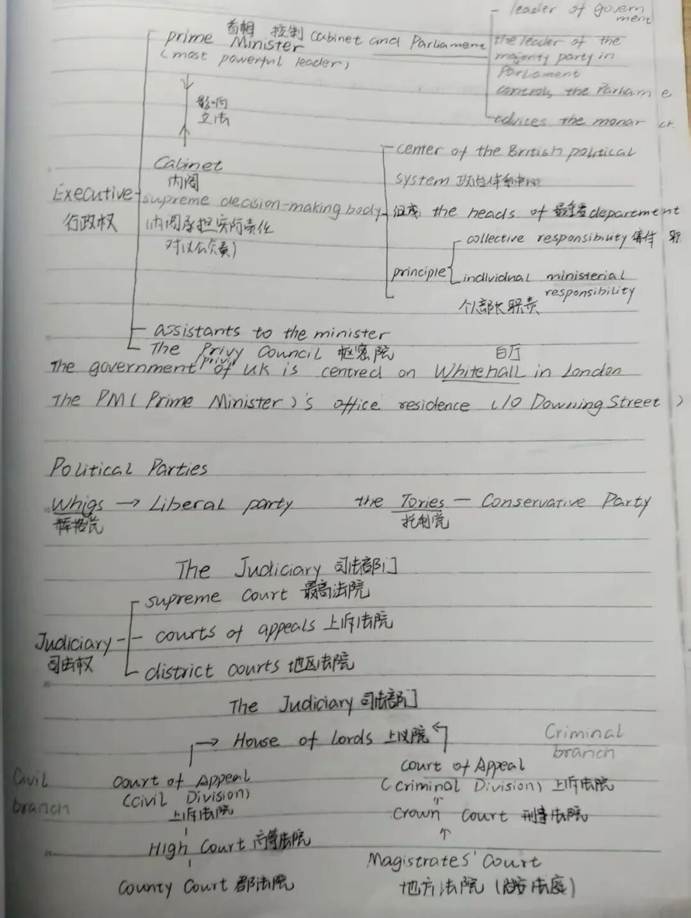 leader of govern
ment
首相 控制
prime Minister Cabinet and Parliament
(most powerful leader)
the leader of the
majority party in
Parliament
controls the Parliame
advices the monar
影响
立法
Cabinet
内阁
Executive
行政权
supreme decision-making body
(内阁承担实际责任
center of the British political
system 政治体系中心
组成 the heads of department
principle
collective responsibility
individual ministerial
responsibility
个部长职责
assistants to the minister
The Privy Council 枢密院
白厅
The government of UK is centred on Whitehall in London
The PM(Prime Minister)'s office residence (10 Downing Street)
Political Parties
Whigs → Liberal party the Tories — Conservative Party
辉格党 托利党
The Judiciary 司法部门
Judiciary
司法权
supreme Court 最高法院
courts of appeals 上诉法院
district courts 地区法院
The Judiciary 司法部门
→ House of Lords 上议院
Criminal
branch
Civil
branch
Court of Appeal
(Civil Division)
上诉法院
High Court 高等法院
County Court 郡法院
Court of Appeal
(Criminal Division) 上诉法院
Crown Court 刑事法院
Magistrates' Court
地方法院